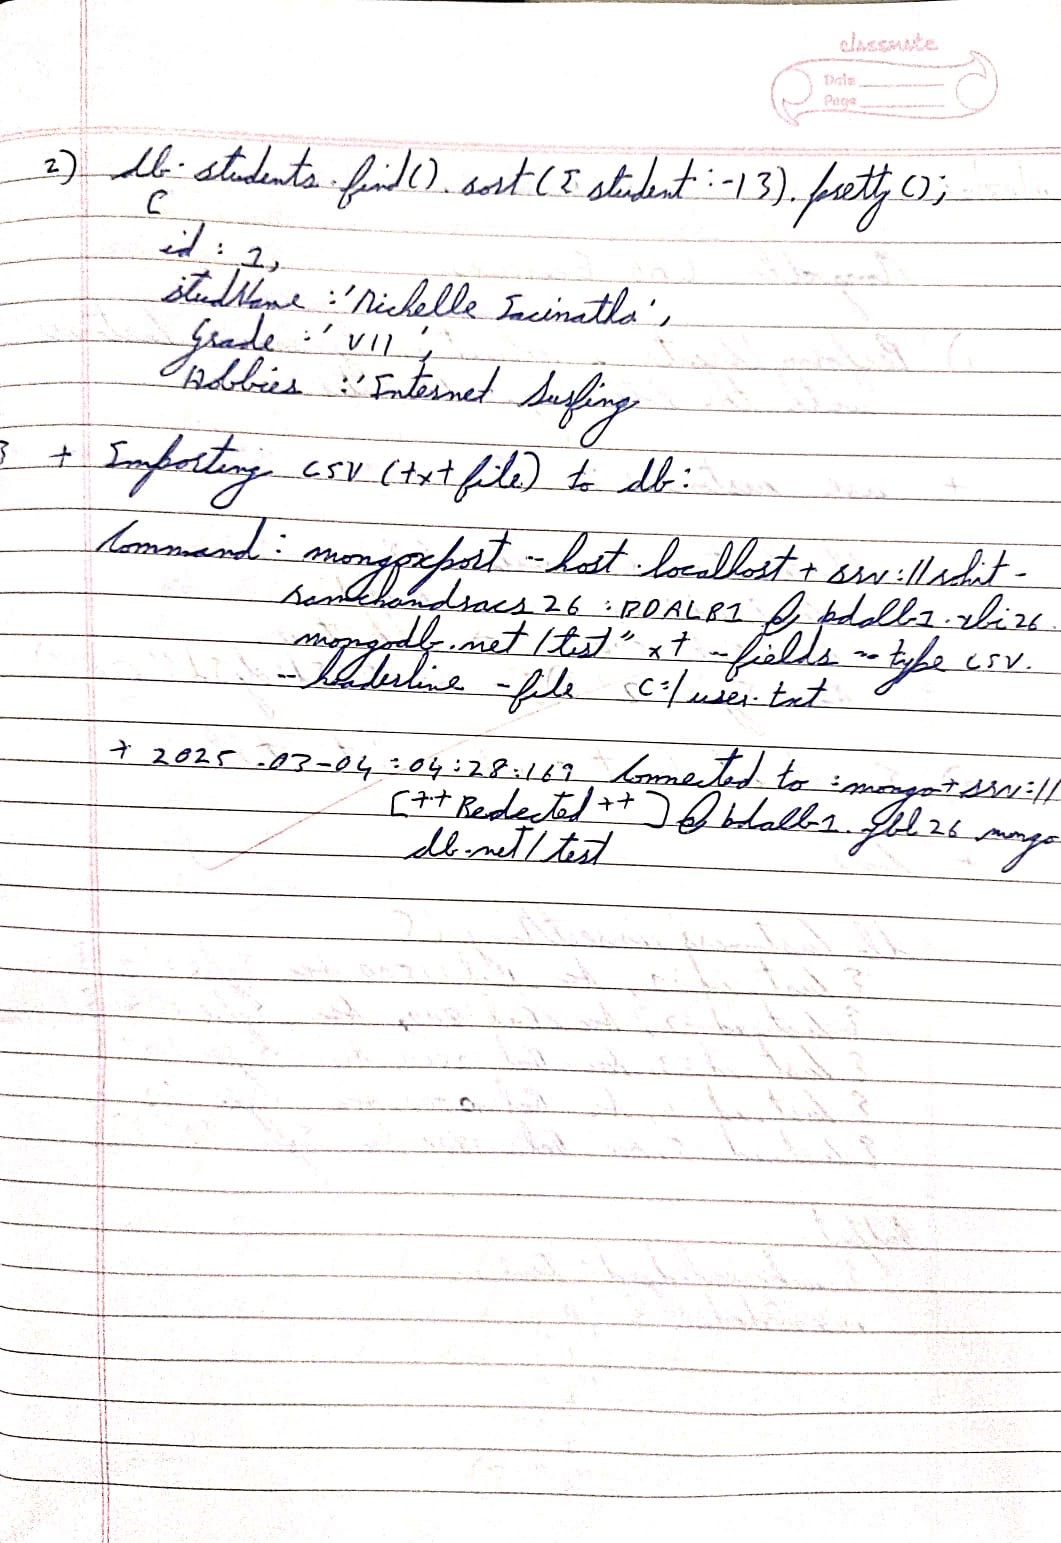 classmate
Date
Page
2) db.students.find().sort({student:-1}).pretty();
{
id : 1,
studName :'Michelle Jacintha',
Grade :' VII ',
Hobbies :'Internet Surfing
} + Importing CSV (txt file) to db:
Command : --host localhost + srv://
26 : BDALB1 @ bdalb1.
mongodb.net/test" --fields -- type csv.
-- headerline -file c:/user.txt
+ 2025-03-04:04:28:169 Connected to :mongo+srv://
[++ Redected ++] @ bdalb1. 26 mongo
db.net/test